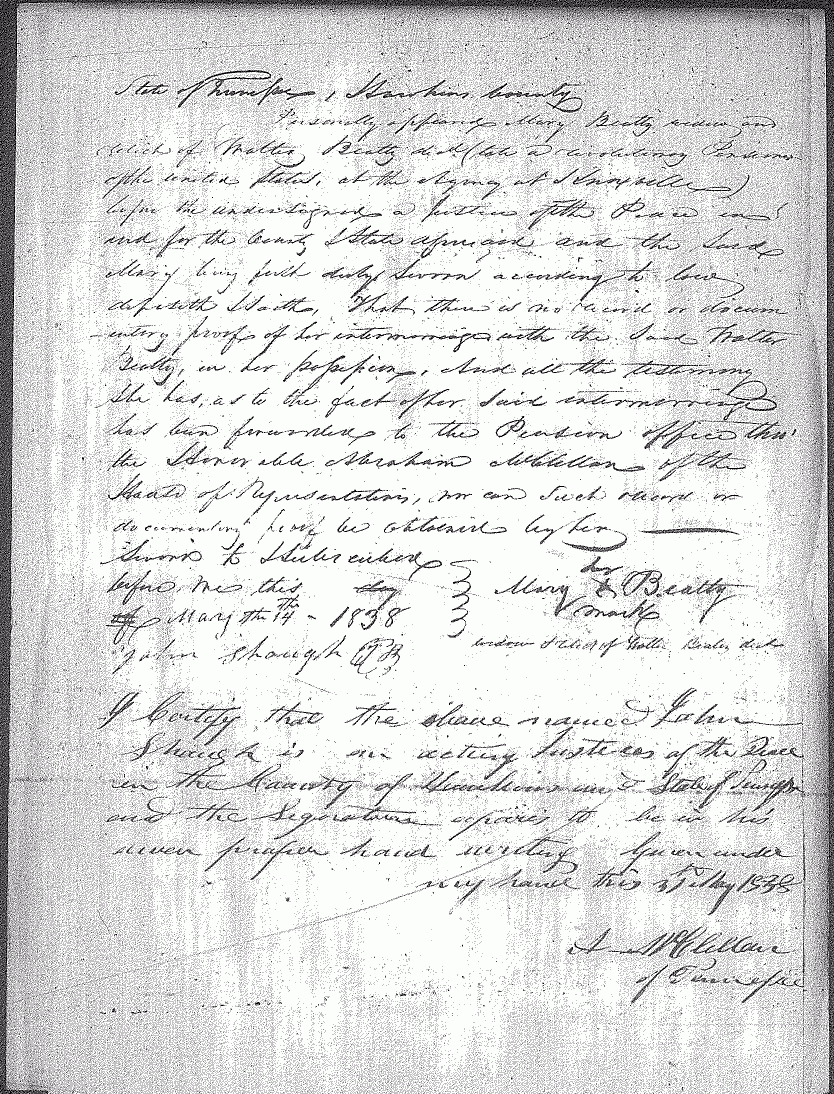 State of Tennessee, Hawkins County
Personally appeared Mary Beatty widow and
relict of Walter Beatty decd (late a revolutionary Pensioner
of the united States, at the Agency at Knoxville)
before the undersigned a Justice of the Peace in
and for the County & State aforesaid and the said
Mary being first duly sworn according to law
deposeth & Saith, That there is no record or docum
entary proof of her intermarriage with the said Walter
Beatty, in her possession, And all the testimony
She has, as to the fact of her said intermarriage
has been forwarded to the Pension office thro'
the Honorable Abraham McClellan of the
House of Representatives, nor can such record or
documentary proof be obtained by her
Sworn to & Subscribed
before me this day
of May the 14th - 1838
John Shough JP
her
Mary X Beatty
mark
widow & relict of Walter Beatty decd
I Certify that the above named John
Shough is an acting Justices of the Peace
in the County of Hawkins and State of Tennessee
and the Signature apears to be in his
own proper hand writing Given under
my hand this May 1838
A McClellan
of Tennessee